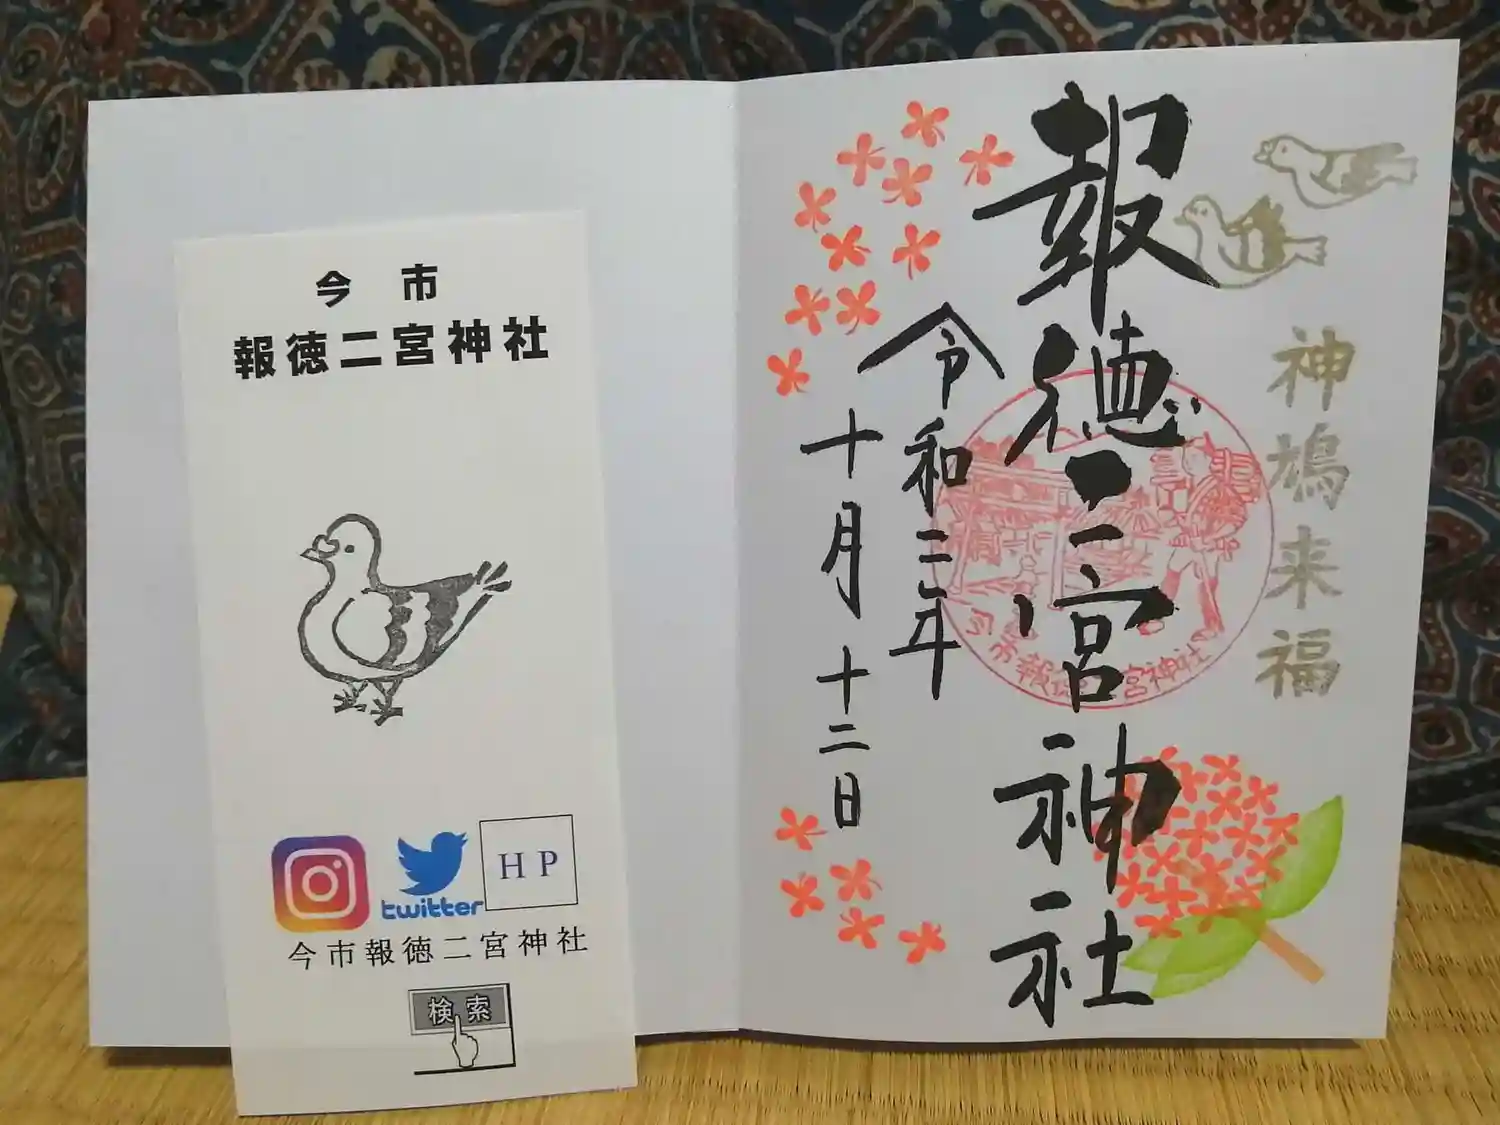 今市
報徳二宮神社
twitter
HP
今市報徳二宮神社
検索
神鳩来福
報徳二宮神社
令和三年
十月十二日
今市報徳二宮神社